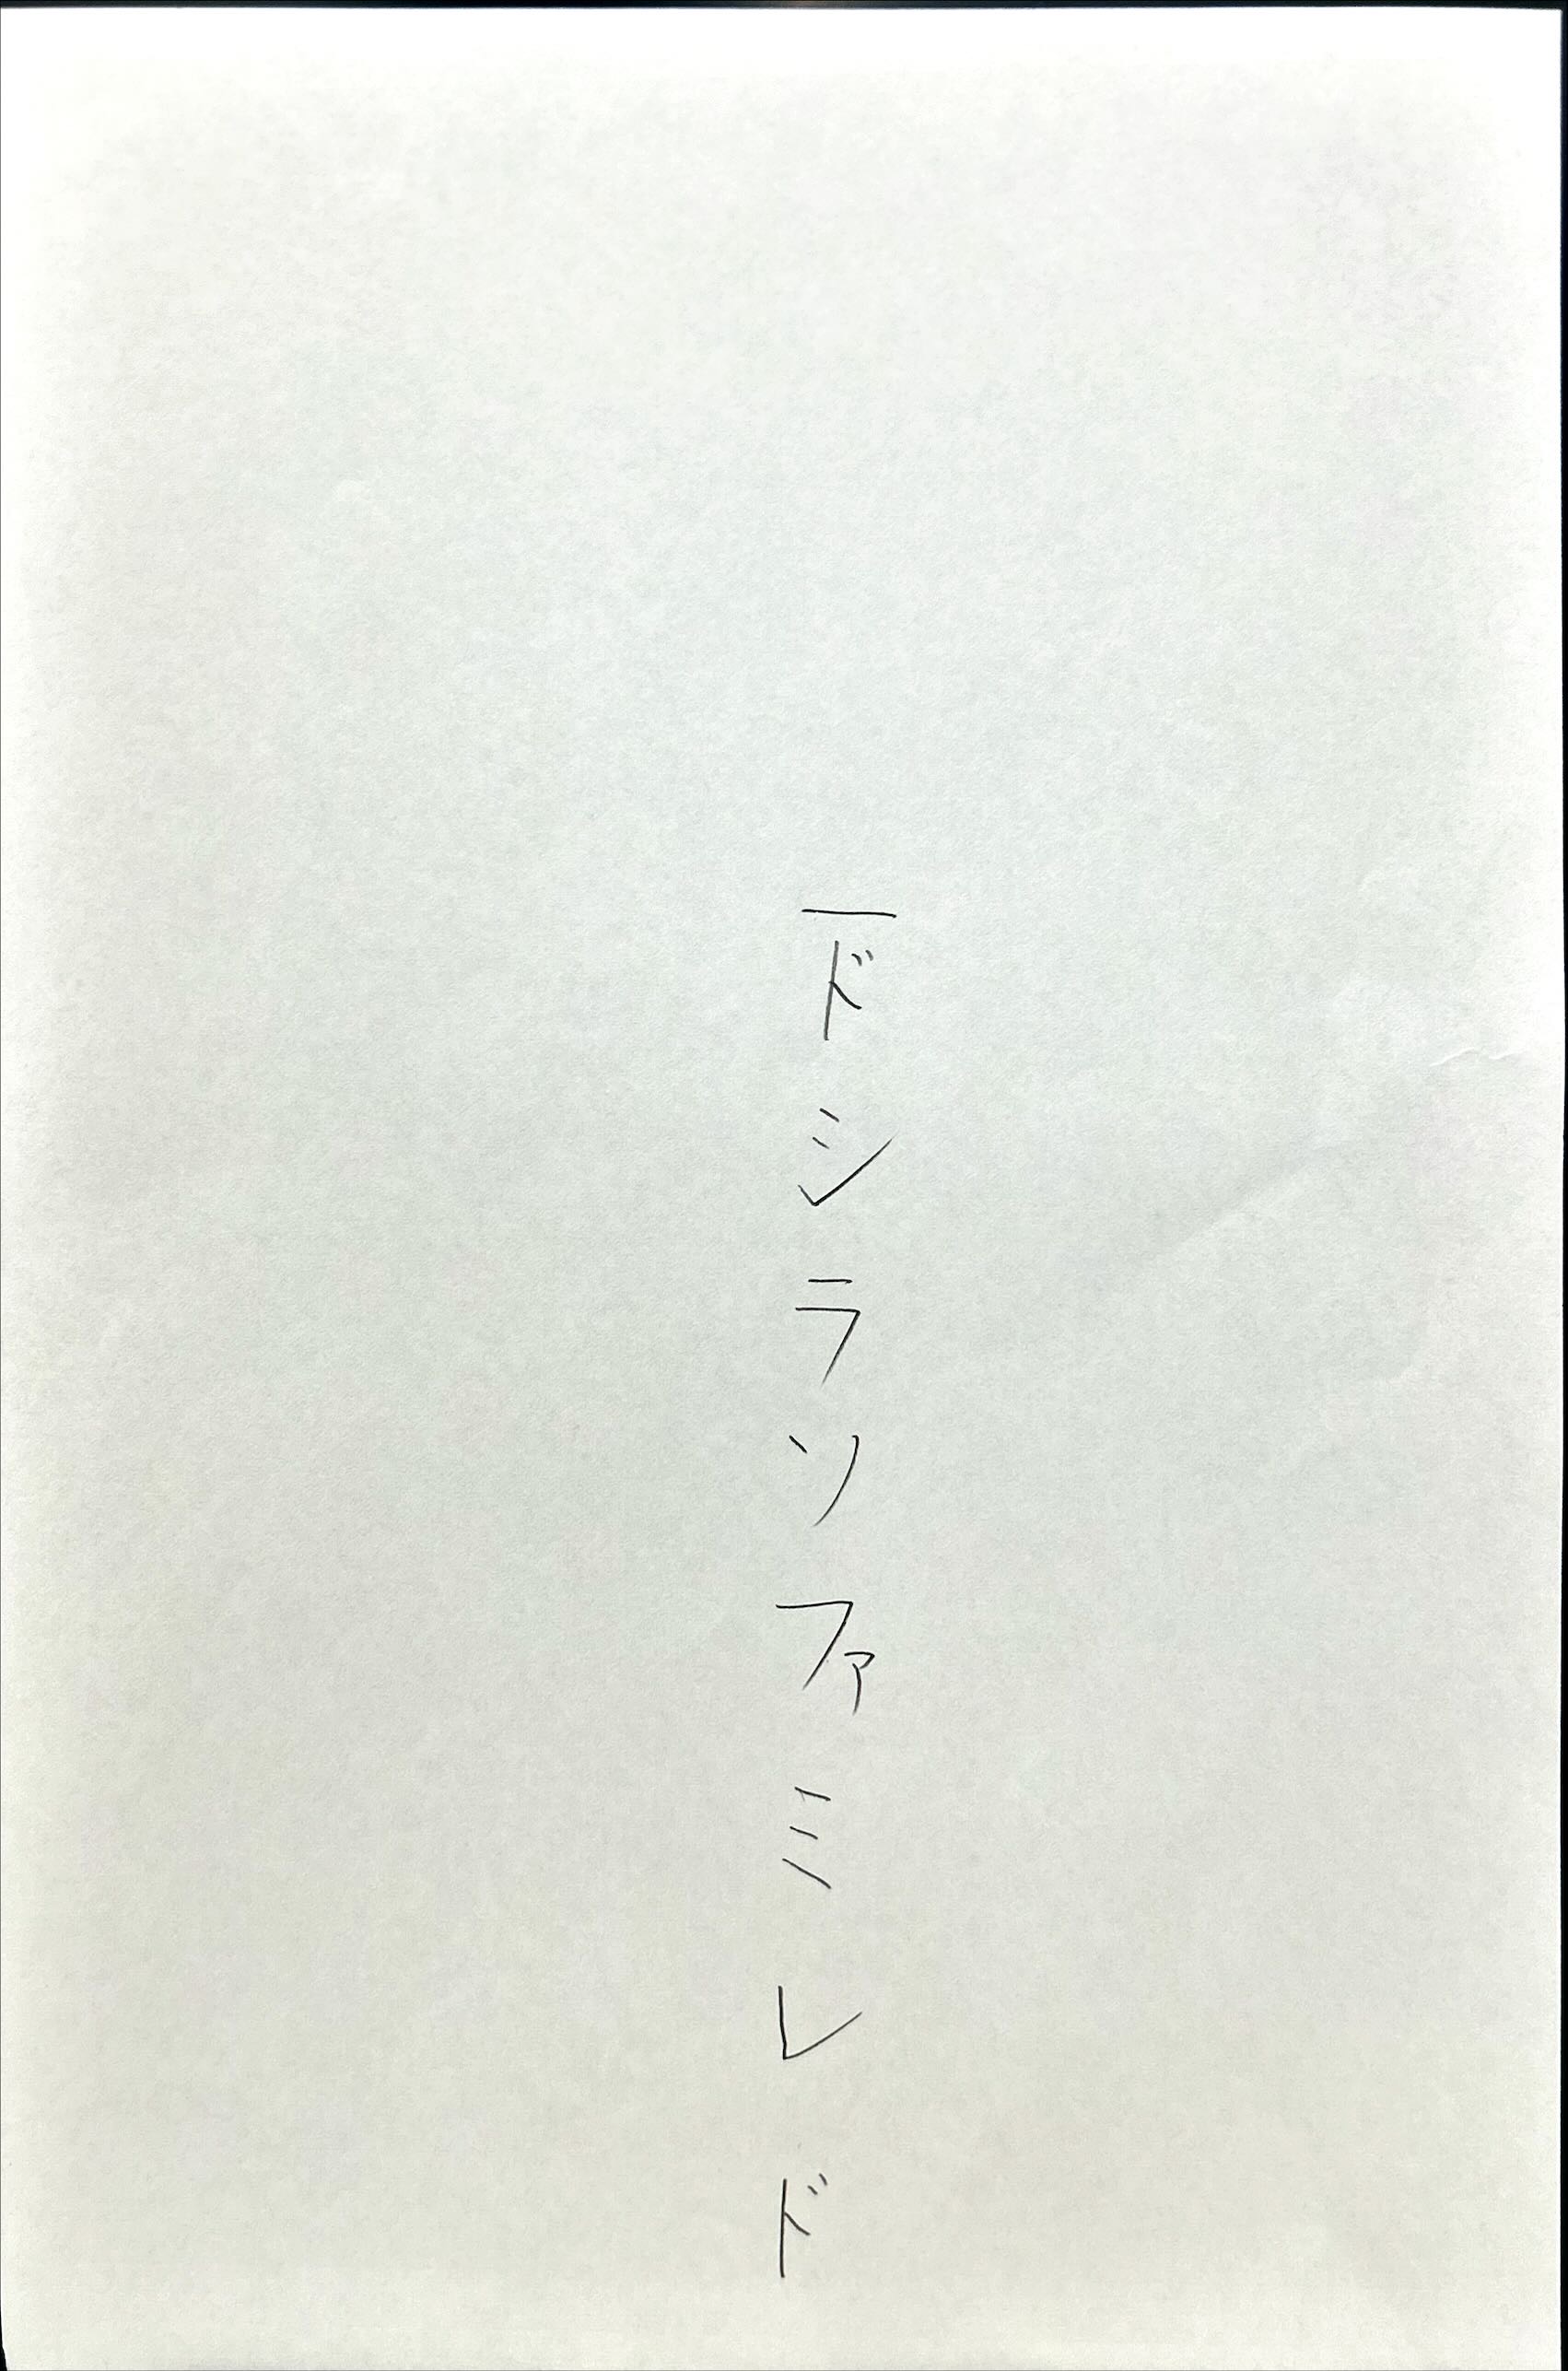 ドシラソファミレド